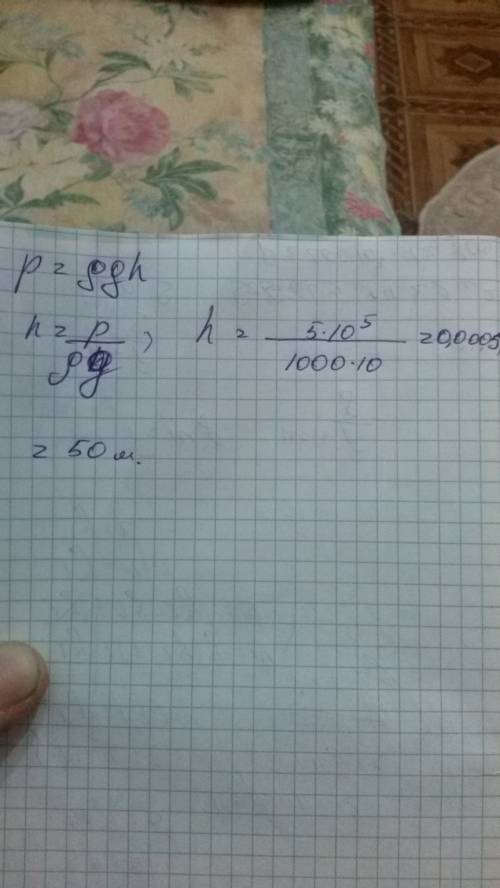 p = ρgh
h = p/ρg; h = 5·10⁵/1000·10 = 0,0005
= 50 м.